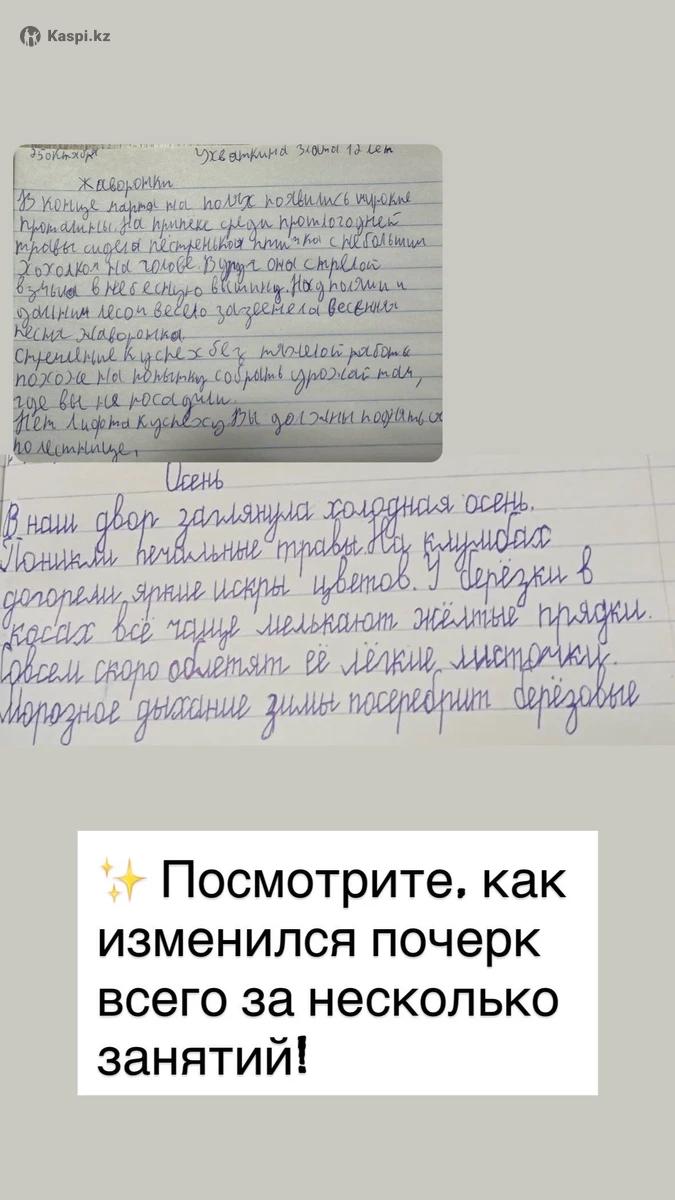 Kaspi.kz
25 октября Ухваткина Злата 12 лет
Жаворонки
В конце марта на полях появились широкие
проталины. На припеке среди прошлогодней
травы сидела пёстренькая птичка с небольшим
хохолком на голове. Вдруг она стрелой
взмыла в небесную вышину. Над полями и
дальним лесом весело зазвенела весенняя
песня жаворонка.
Стремление к успеху без тяжелой работы
похоже на попытку собрать урожай там,
где вы не посадили.
Нет лифта к успеху. Вы должны поднять ся
по лестнице.
Осень
В наш двор заглянула холодная осень.
Поникли печальные травы. На клумбах
догорели яркие искры цветов. У берёзки в
косах всё чаще мелькают жёлтые прядки.
Совсем скоро облетят её лёгкие листочки.
Морозное дыхание зимы посеребрит берёзовые
✨ Посмотрите, как
изменился почерк
всего за несколько
занятий!